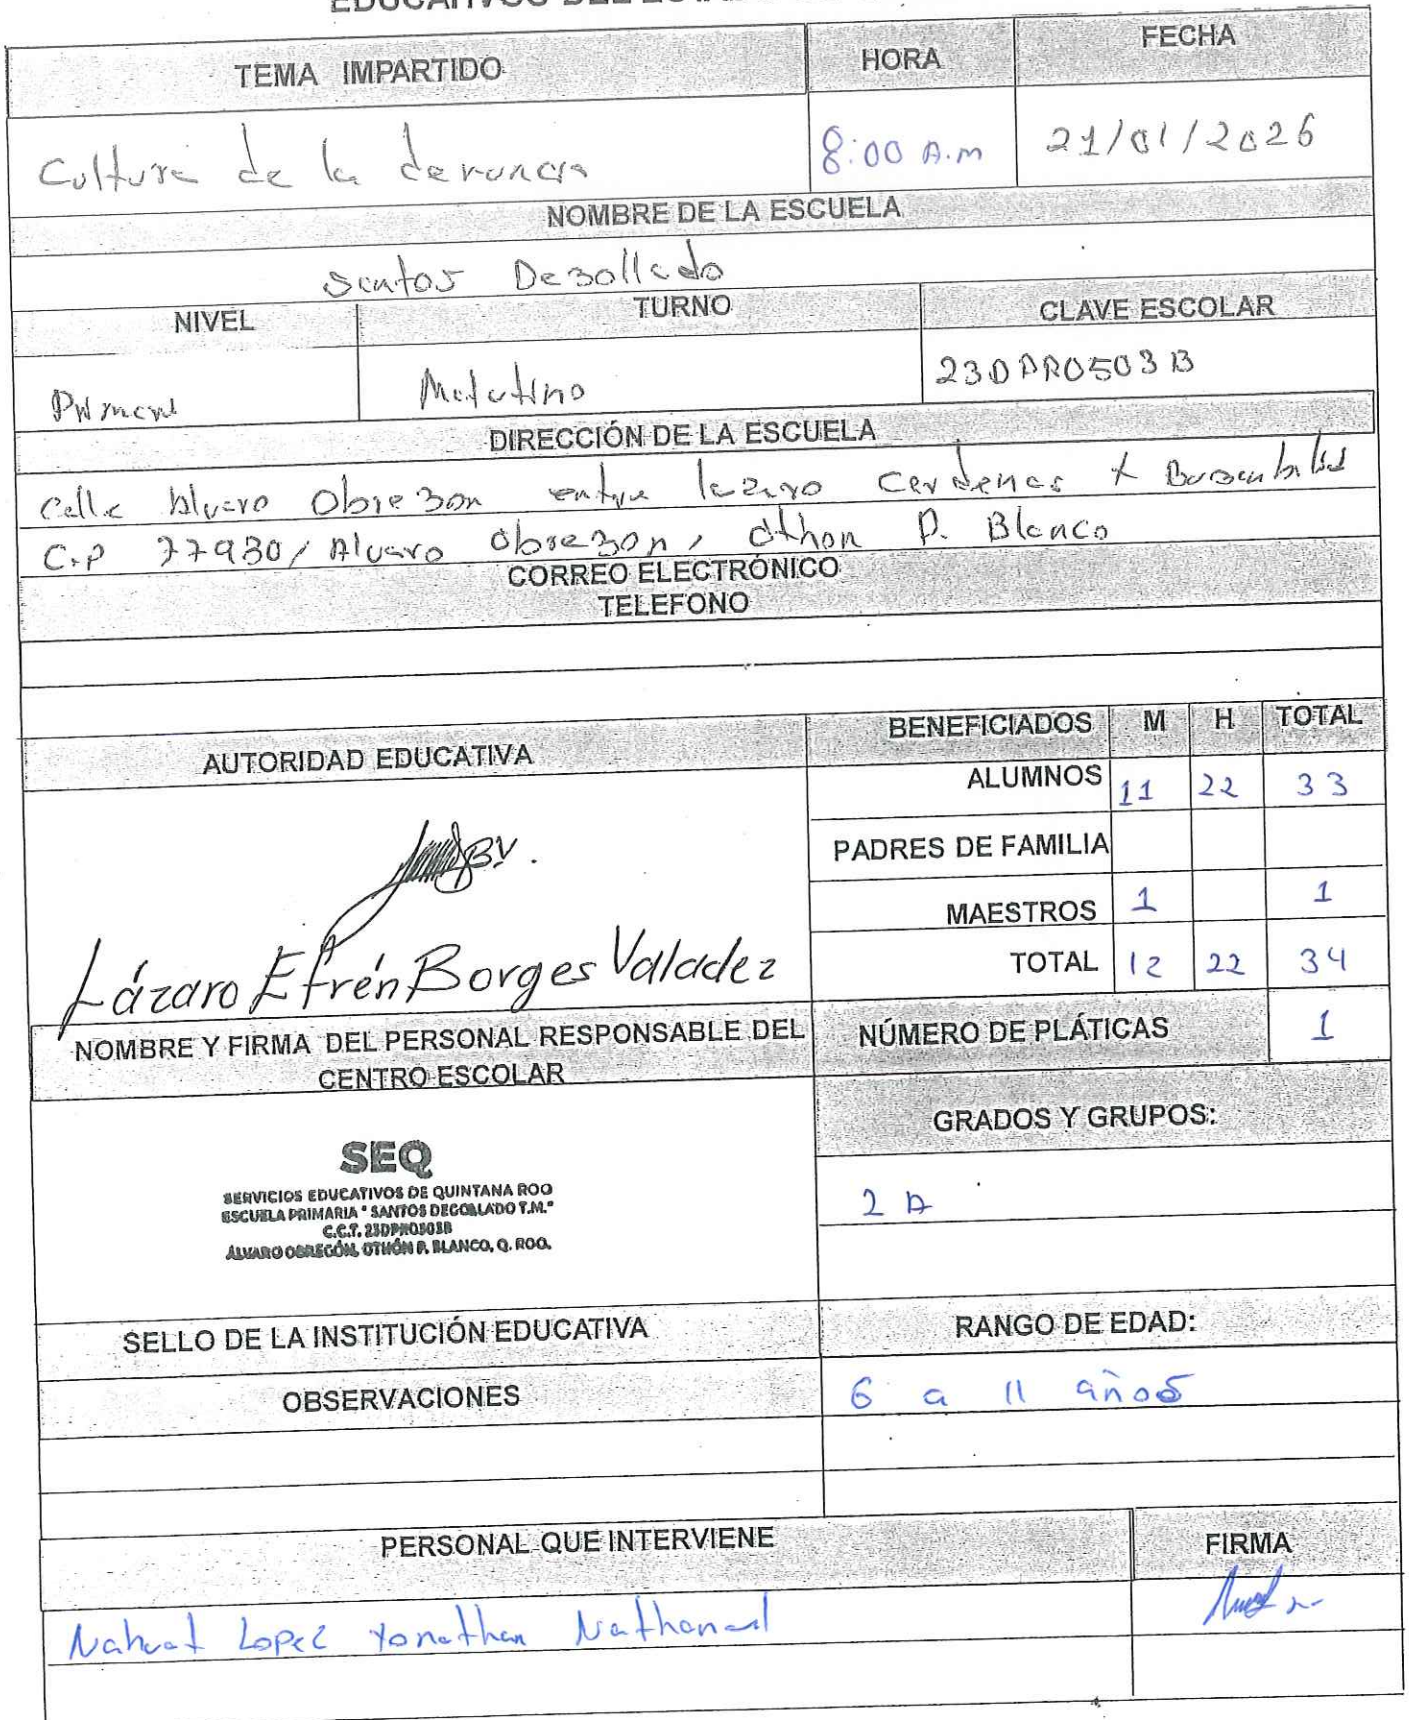 TEMA IMPARTIDO HORA FECHA
Cultura de la denuncia 8:00 A.m 21/01/2026
NOMBRE DE LA ESCUELA
Santos Degollado
NIVEL TURNO CLAVE ESCOLAR
Primaria Matutino 23DPR0503B
DIRECCIÓN DE LA ESCUELA
Calle Alvaro Obregon entre lazaro Cardenas
C.P 77930/ Alvaro Obregon, Othon P. Blanco
CORREO ELECTRÓNICO
TELEFONO
AUTORIDAD EDUCATIVA BENEFICIADOS M H TOTAL
ALUMNOS 11 22 33
PADRES DE FAMILIA
MAESTROS 1 1
Lázaro Efrén Borges Valadez TOTAL 12 22 34
NOMBRE Y FIRMA DEL PERSONAL RESPONSABLE DEL
CENTRO ESCOLAR
NÚMERO DE PLÁTICAS 1
GRADOS Y GRUPOS:
SEQ
SERVICIOS EDUCATIVOS DE QUINTANA ROO
ESCUELA PRIMARIA "SANTOS DEGOLLADO T.M."
C.C.T. 23DPR0503B
ÁLVARO OBREGÓN, OTHÓN P. BLANCO, Q. ROO.
2 A
SELLO DE LA INSTITUCIÓN EDUCATIVA RANGO DE EDAD:
OBSERVACIONES 6 a 11 años
PERSONAL QUE INTERVIENE FIRMA
Nahuat Lopez Yonathan Nathanael